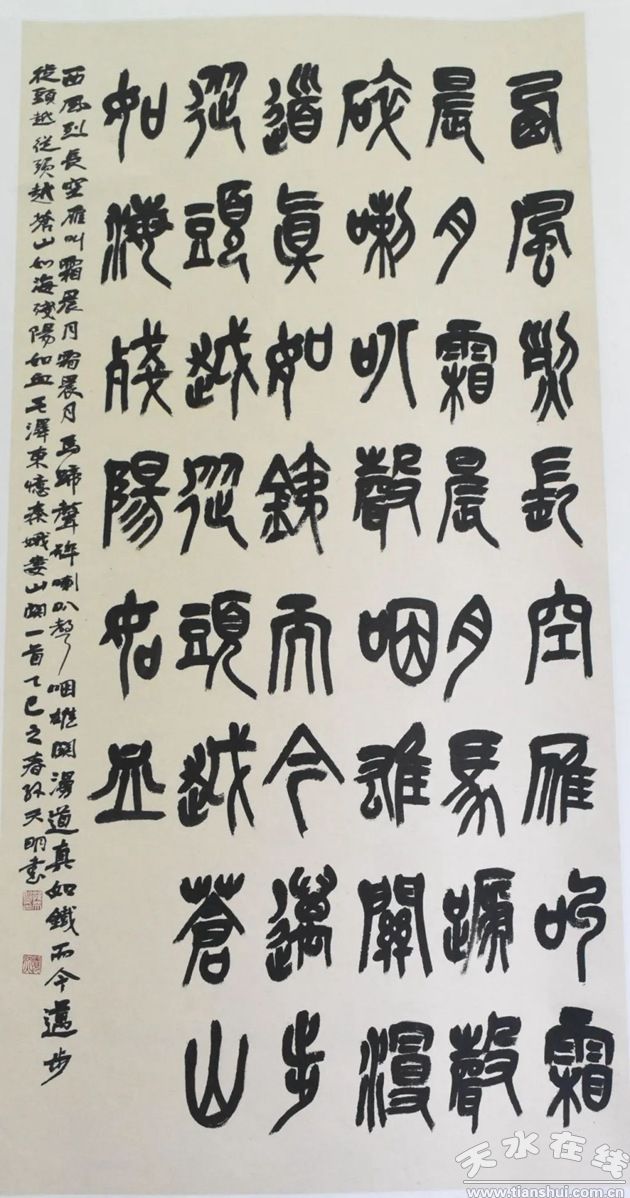 西風烈長空雁叫霜
晨月霜晨月馬蹄聲
碎喇叭聲咽雄關漫
道真如鐵而今邁步
從頭越從頭越蒼山
如海殘陽如血
西風烈長空雁叫霜晨月霜晨月馬蹄聲碎喇叭聲咽雄関漫道真如鐵而今邁步
從頭越從頭越蒼山如海殘陽如血毛澤東憶秦娥婁山関一首乙巳之春孫天明書
天水在线
www.tianshui.com.cn